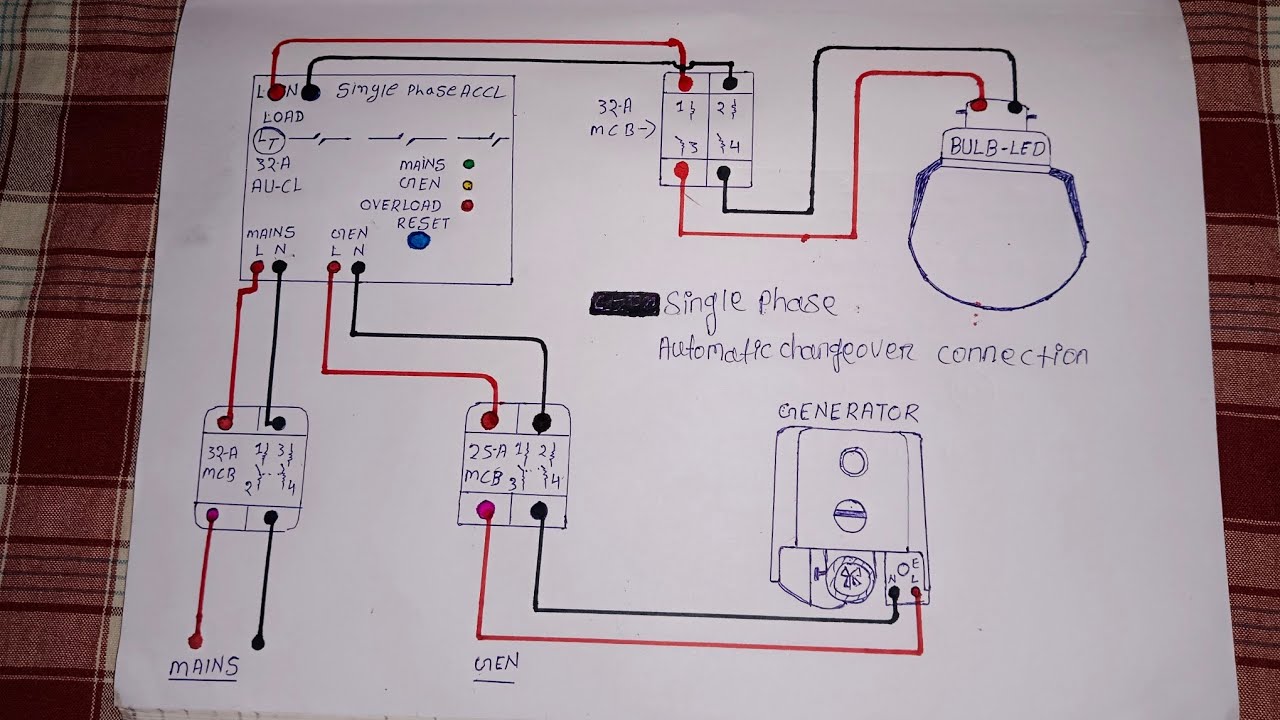 L N Single Phase ACCL
LOAD
LT
32-A
AU-CL
MAINS
GEN
OVERLOAD
RESET
MAINS GEN
L N L N
32-A
MCB→
1 2
3 4
BULB-LED
Single Phase
Automatic changeover connection
32-A 1 3
MCB
2 4
25-A 1 2
MCB
3 4
GENERATOR
E
N L
MAINS
GEN